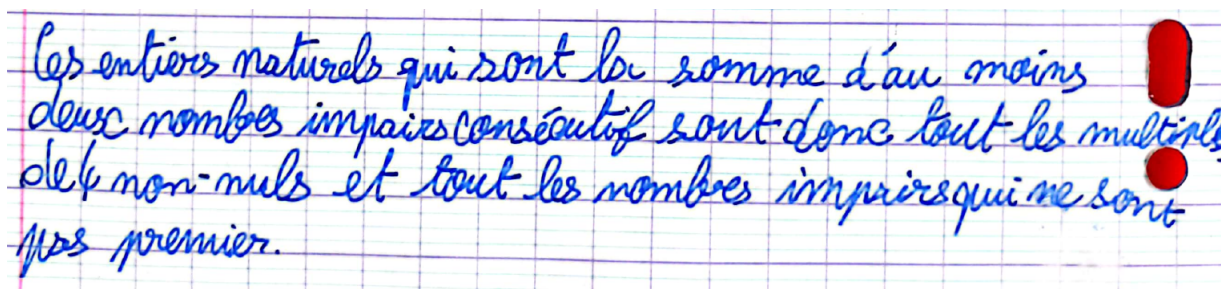 Les entiers naturels qui sont la somme d'au moins
deux nombres impairs consécutif sont donc tout les multiples
de 4 non-nuls et tout les nombres impairs qui ne sont
pas premier.